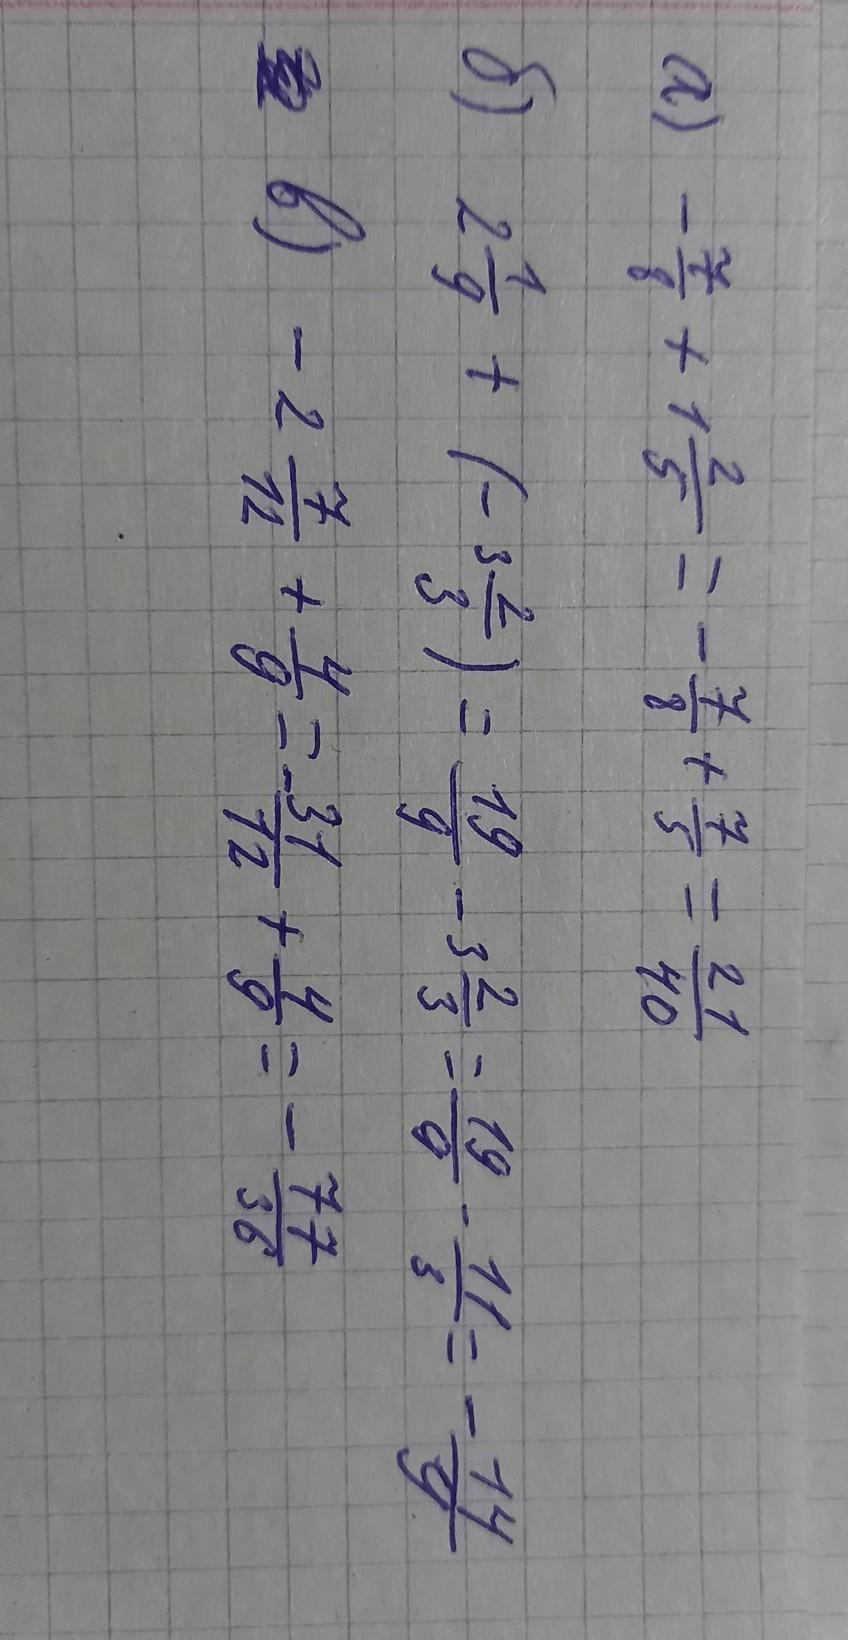 а) - 7/8 + 1 2/5 = - 7/8 + 7/5 = 21/40
б) 2 1/9 + (- 3 2/3) = 19/9 - 3 2/3 = 19/9 - 11/3 = - 14/9
в) - 2 7/12 + 4/9 = - 31/12 + 4/9 = - 77/36